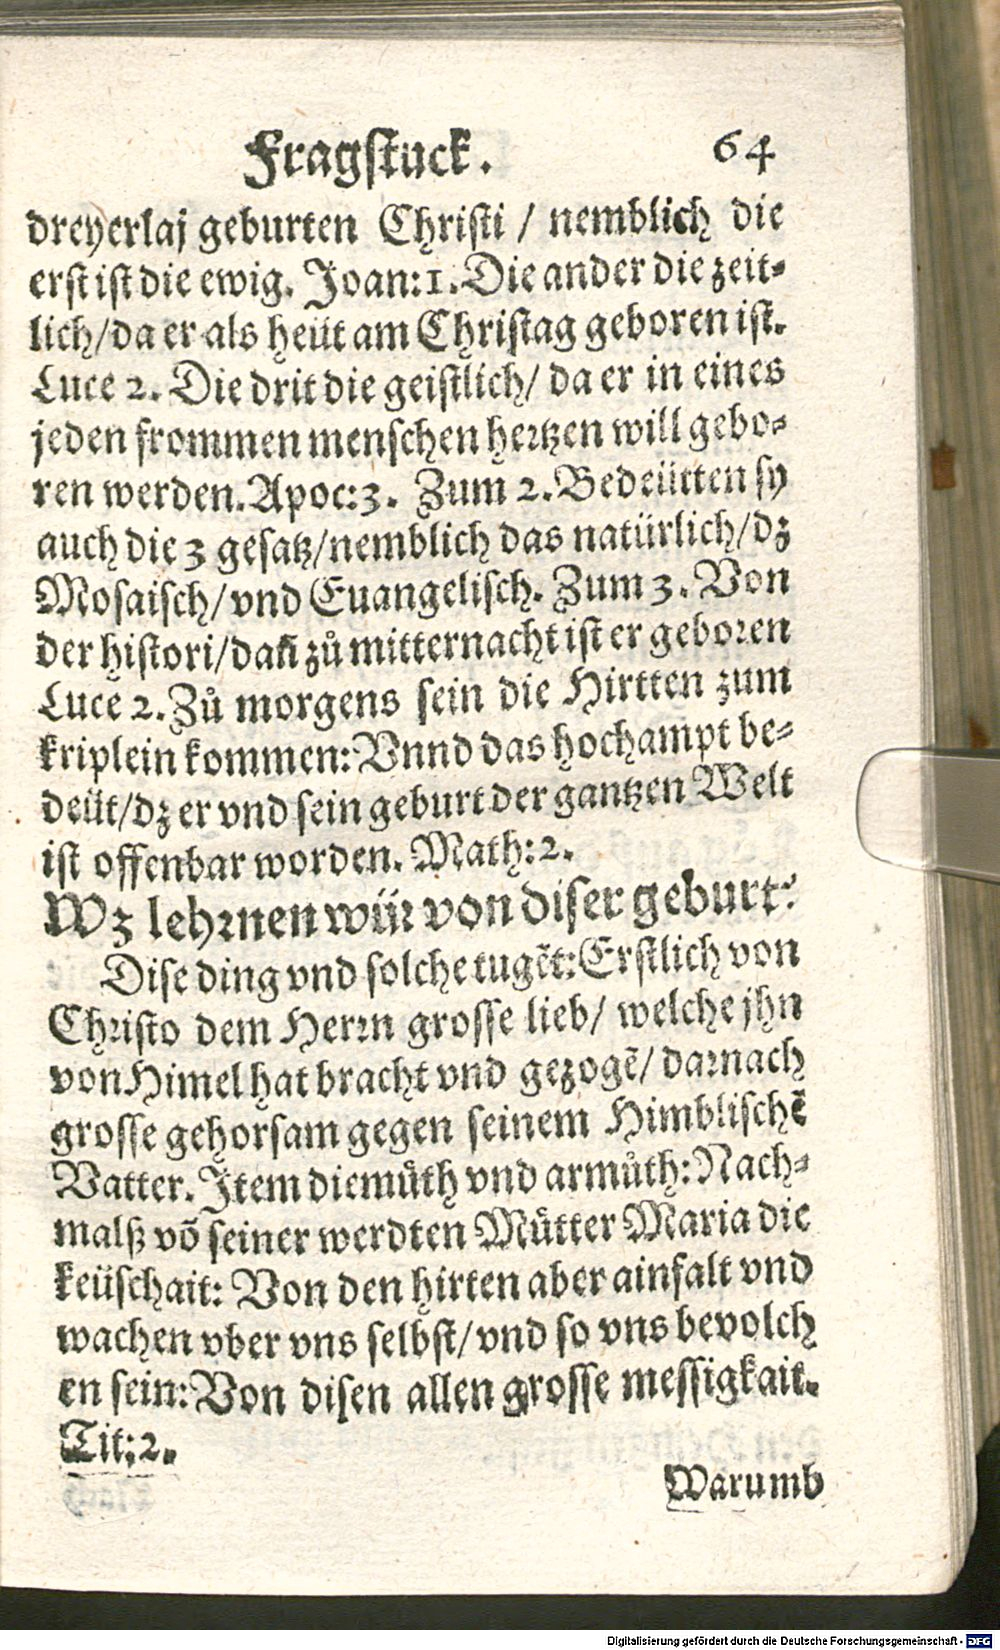 Fragſtuck. 64
dreyerlaj geburten Chriſti / nemblich die
erſt iſt die ewig. Joan: 1. Die ander die zeit⸗
lich/da er als heüt am Chriſtag geboren iſt.
Luce 2. Die drit die geiſtlich/ da er in eines
jeden frommen menſchen hertzen will gebo⸗
ren werden. Apoc: 3. Zum 2. Bedeütten ſy
auch die 3 geſatz/nemblich das natürlich/dz
Moſaiſch/vnd Euangeliſch. Zum 3. Von
der hiſtori/dañ zů mitternacht iſt er geboren
Luce 2. Zů morgens ſein die Hirtten zum
kriplein kommen: Vnnd das hochampt be⸗
deüt/dz er vnd ſein geburt der gantzen Welt
iſt offenbar worden. Math: 2.
Wz lehrnen wür von diſer geburt?
Diſe ding vnd ſolche tugẽt: Erſtlich von
Chriſto dem Herrn groſſe lieb/ welche jhn
von Himel hat bracht vnd gezogẽ/ darnach
groſſe gehorſam gegen ſeinem Himbliſchẽ
Vatter. Item diemůth vnd armůth: Nach⸗
malß võ ſeiner werdten Můtter Maria die
keüſchait: Von den hirten aber ainfalt vnd
wachen vber vns ſelbſt/ vnd ſo vns bevolch
en ſein: Von diſen allen groſſe meſſigkait.
Tit: 2.
Warumb
Digitalisierung gefördert durch die Deutsche Forschungsgemeinschaft - DFG